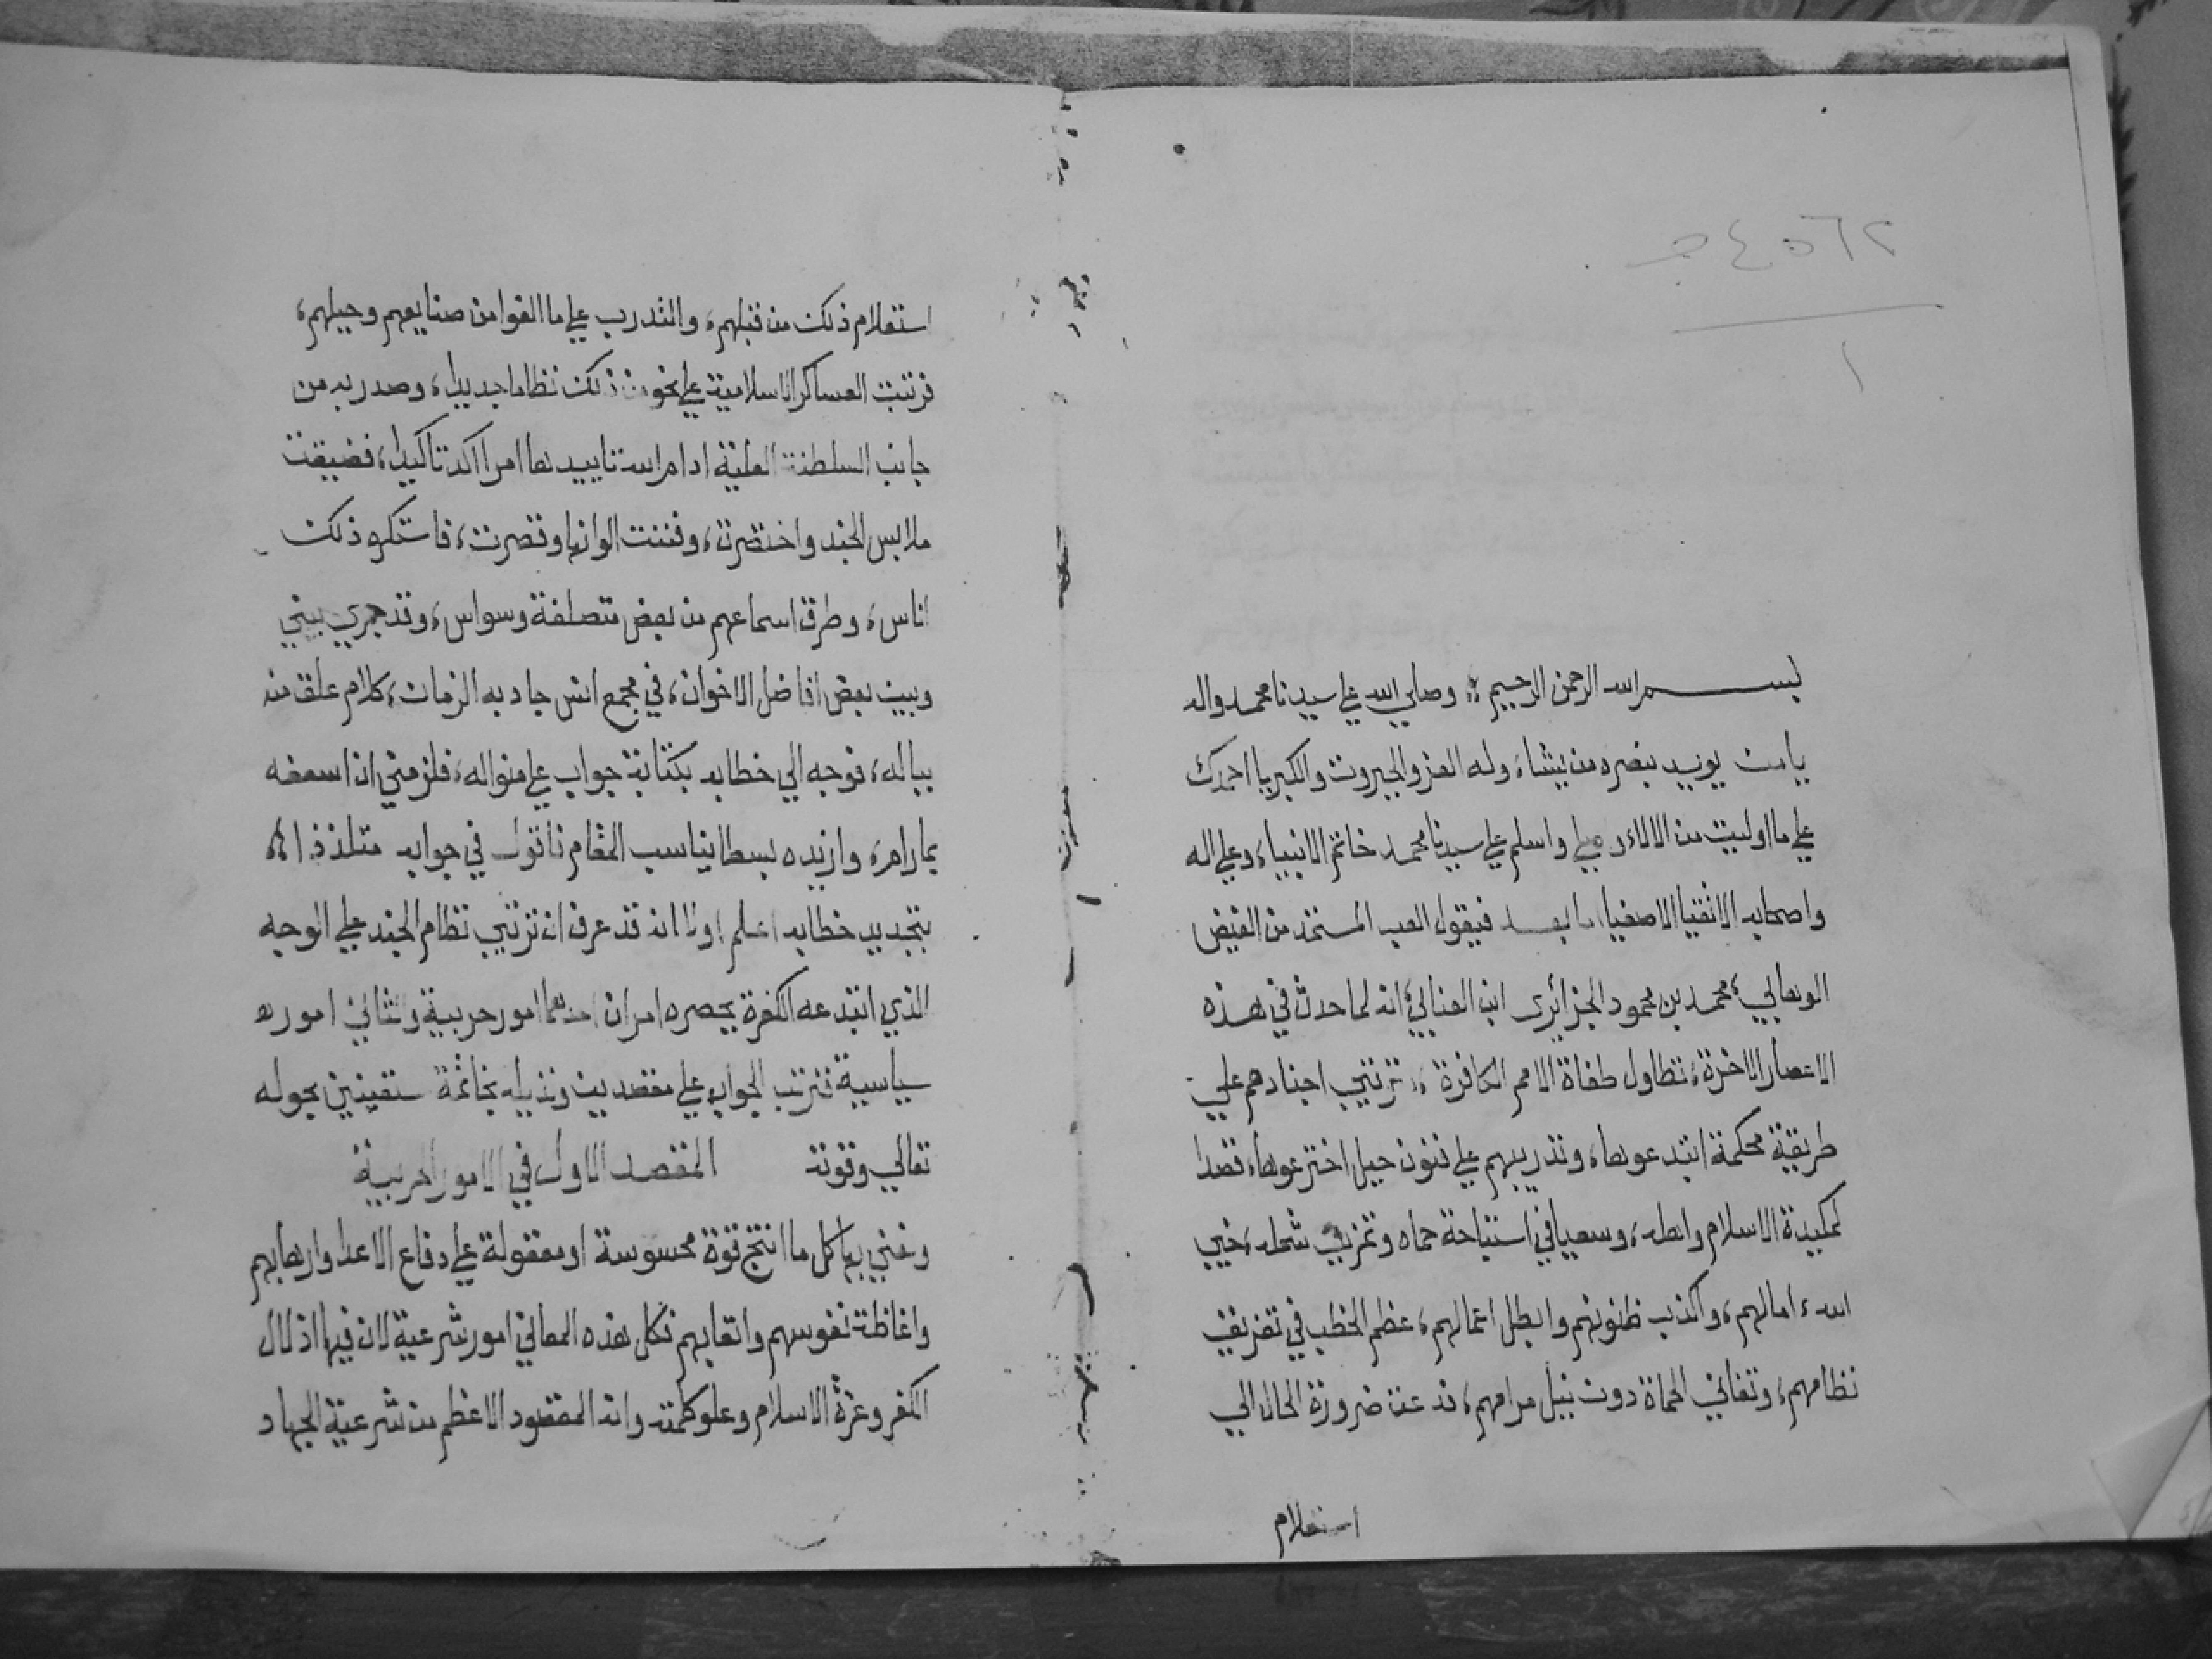 ٤٥٦٢ ج
١
بسم الله الرحمن الرحيم وصلي الله علي سيدنا محمد واله
يا من يويد بنصره من يشاء وله العز والجبروت والكبريا احمدك
علي ما اوليت من الالاء و واسلم علي سيدنا محمد خاتم الانبياء، وعلي اله
واصحابه الاتقيا الاصفيا اما بعد فيقول العبد المستمد من الفيض
الوهابي، محمد بن محمود الجزائري ابن العنابي، انه لما حدث في هذه
الاعصار الاخرة، تطاول طغاة الامم الكافرة، ترتيب اجنادهم علي
طريقة محكمة ابتدعوها، وتدريبهم علي فنون حيل اخترعوها، قصدا
لمكيدة الاسلام واهله، وسعيا في استباحة حماه وتمزيق شمله، خيب
الله امالهم، واكذب ظنونهم وابطل اعمالهم، عظم الخطب في تفريق
نظامهم، وتفاني الحماة دون نيل مرامهم، قد عنت ضرورة الحال الي
استعلام
استعلام ذلك من قبلهم، والتدرب علي ما الفوا من صنايعهم وحيلهم،
فرتبت العساكر الاسلامية علي نحو من ذلك نظاما جديدا، وصدر به من
جانب السلطنة العلية ادام الله تاييدها امرا اكد تاكيدا، فضيقت
ملابس الجند واختصرت، وفننت الوانها وقصرت، فاستكره ذلك
اناس، وطرق اسماعهم من بعض متصلفة وسواس، وقد جري بيني
وبين بعض افاضل الاخوان، في مجمع انس جاد به الزمان، كلام علق منه
بباله، فوجه الي خطابه بكتابة جواب علي منواله، فلزمني ان اسعفه
بمارامه، وازيده بسطا يناسب المقام فاقول في جوابه متلذذا
بتجديد خطابه اعلم اولا انه قد عرف ان ترتيب نظام الجند علي الوجه
الذي ابتدعه الكفرة يحصره امران احدهما امور حربية والثاني امور
سياسية فنرتب الجواب علي مقصدين ونذيله بخاتمة مستعينين بحوله
تعالي وقوته المقصد الاول في الامور الحربية
ونعني بها كل ما انتج قوة محسوسة او معقولة علي دفاع الاعدا وارهابهم
واغاظة نفوسهم واتعابهم فكل هذه المعاني امور شرعية لان فيها اذلال
الكفر وعزة الاسلام وعلو كلمته وانه المقصود الاعظم من شرعية الجهاد